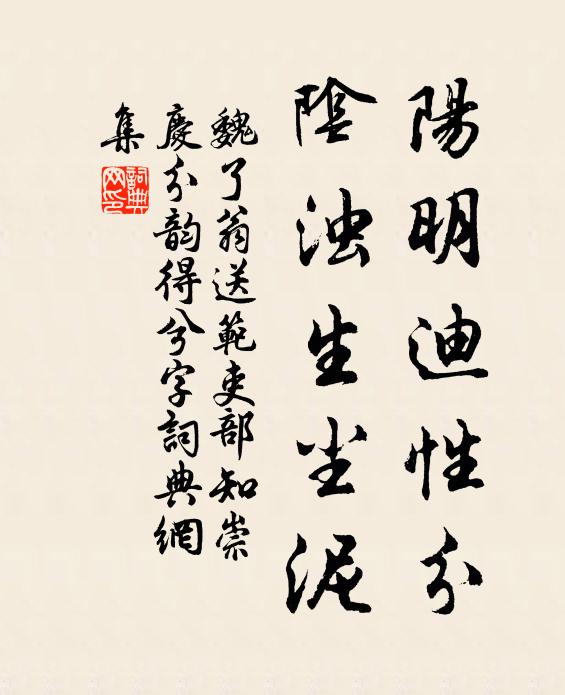 陽明迪性分
陰浊生尘泥
魏了翁送範吏部知崇
慶分韵得兮字詞典網
集
詞典
网印